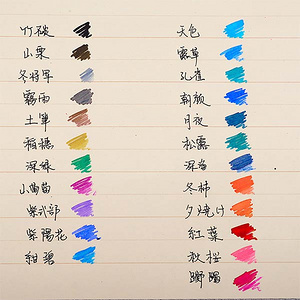 竹碳
山栗
冬将军
霧雨
土筆
稲穂
深緑
山葡萄
紫式部
紫陽花
紺碧
天色
露草
孔雀
朝顔
月夜
松露
深海
冬柿
夕焼け
紅葉
秋桜
躑躅